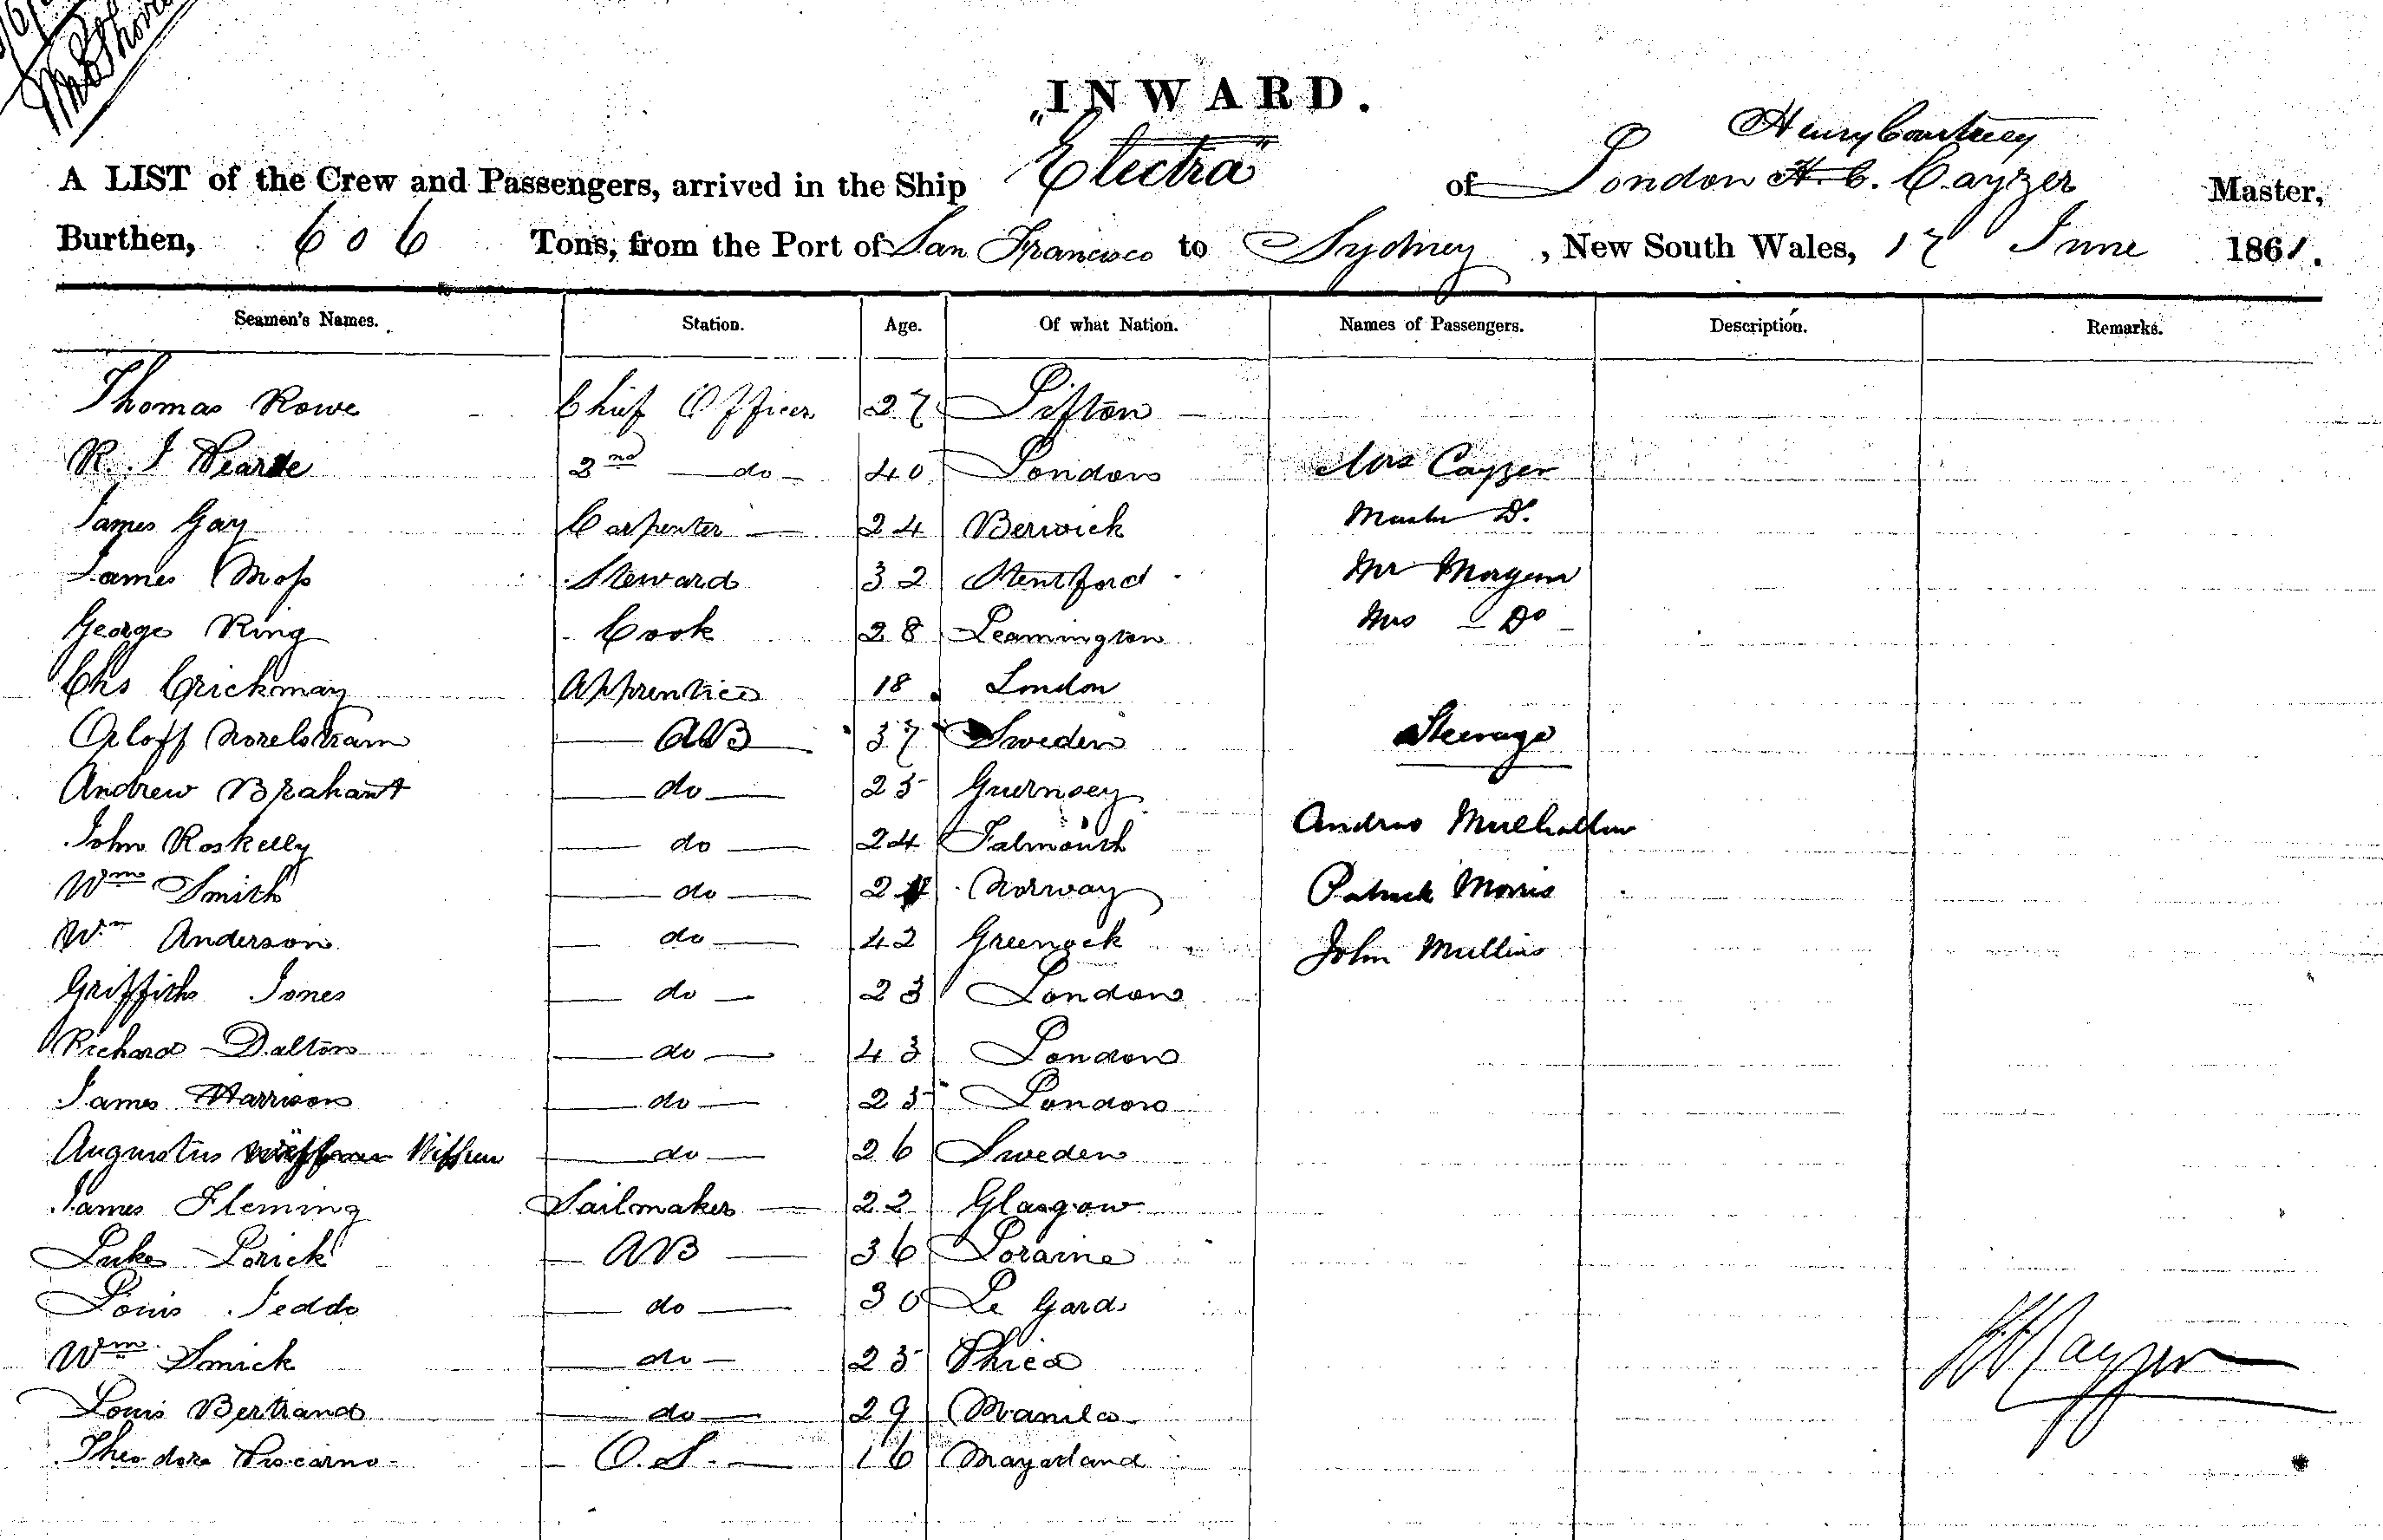 INWARD.
Henry Courtney
A LIST of the Crew and Passengers, arrived in the Ship "Electra" of London H. C. Cayzer Master,
Burthen, 606 Tons, from the Port of San Francisco to Sydney, New South Wales, 17 June 1861.
Seamen's Names. Station. Age. Of what Nation. Names of Passengers. Description. Remarks.
Thomas Rowe Chief Officer 27 Lifton
R. J Hearle 2nd do 40 London Mrs Cayzer
James Gay Carpenter 24 Berwick Master Do.
James Moss Steward 32 Mr Morgan
George King Cook 28 Leamington Mrs Do
Chs Crickmay Apprentice 18 London
Orloff AB 37 Sweden Steerage
Andrew Brahant do 25 Guernsey
John Roskelly do 24 Falmouth Andrew
Wm Smith do 24 Norway Patrick Morris
Wm Anderson do 42 Greenock John Mullins
Griffiths Jones do 23 London
Richard Dalton do 43 London
James Harrison do 25 London
Augustus do 26 Sweden
James Fleming Sailmaker 22 Glasgow
Luke Lorick AB 36 Loraine
Louis Jeddo do 30 Le Gard
Wm Smick do 25
Louis Bertrand do 29 Manila
Theodore O.S. 16
H C Cayzer